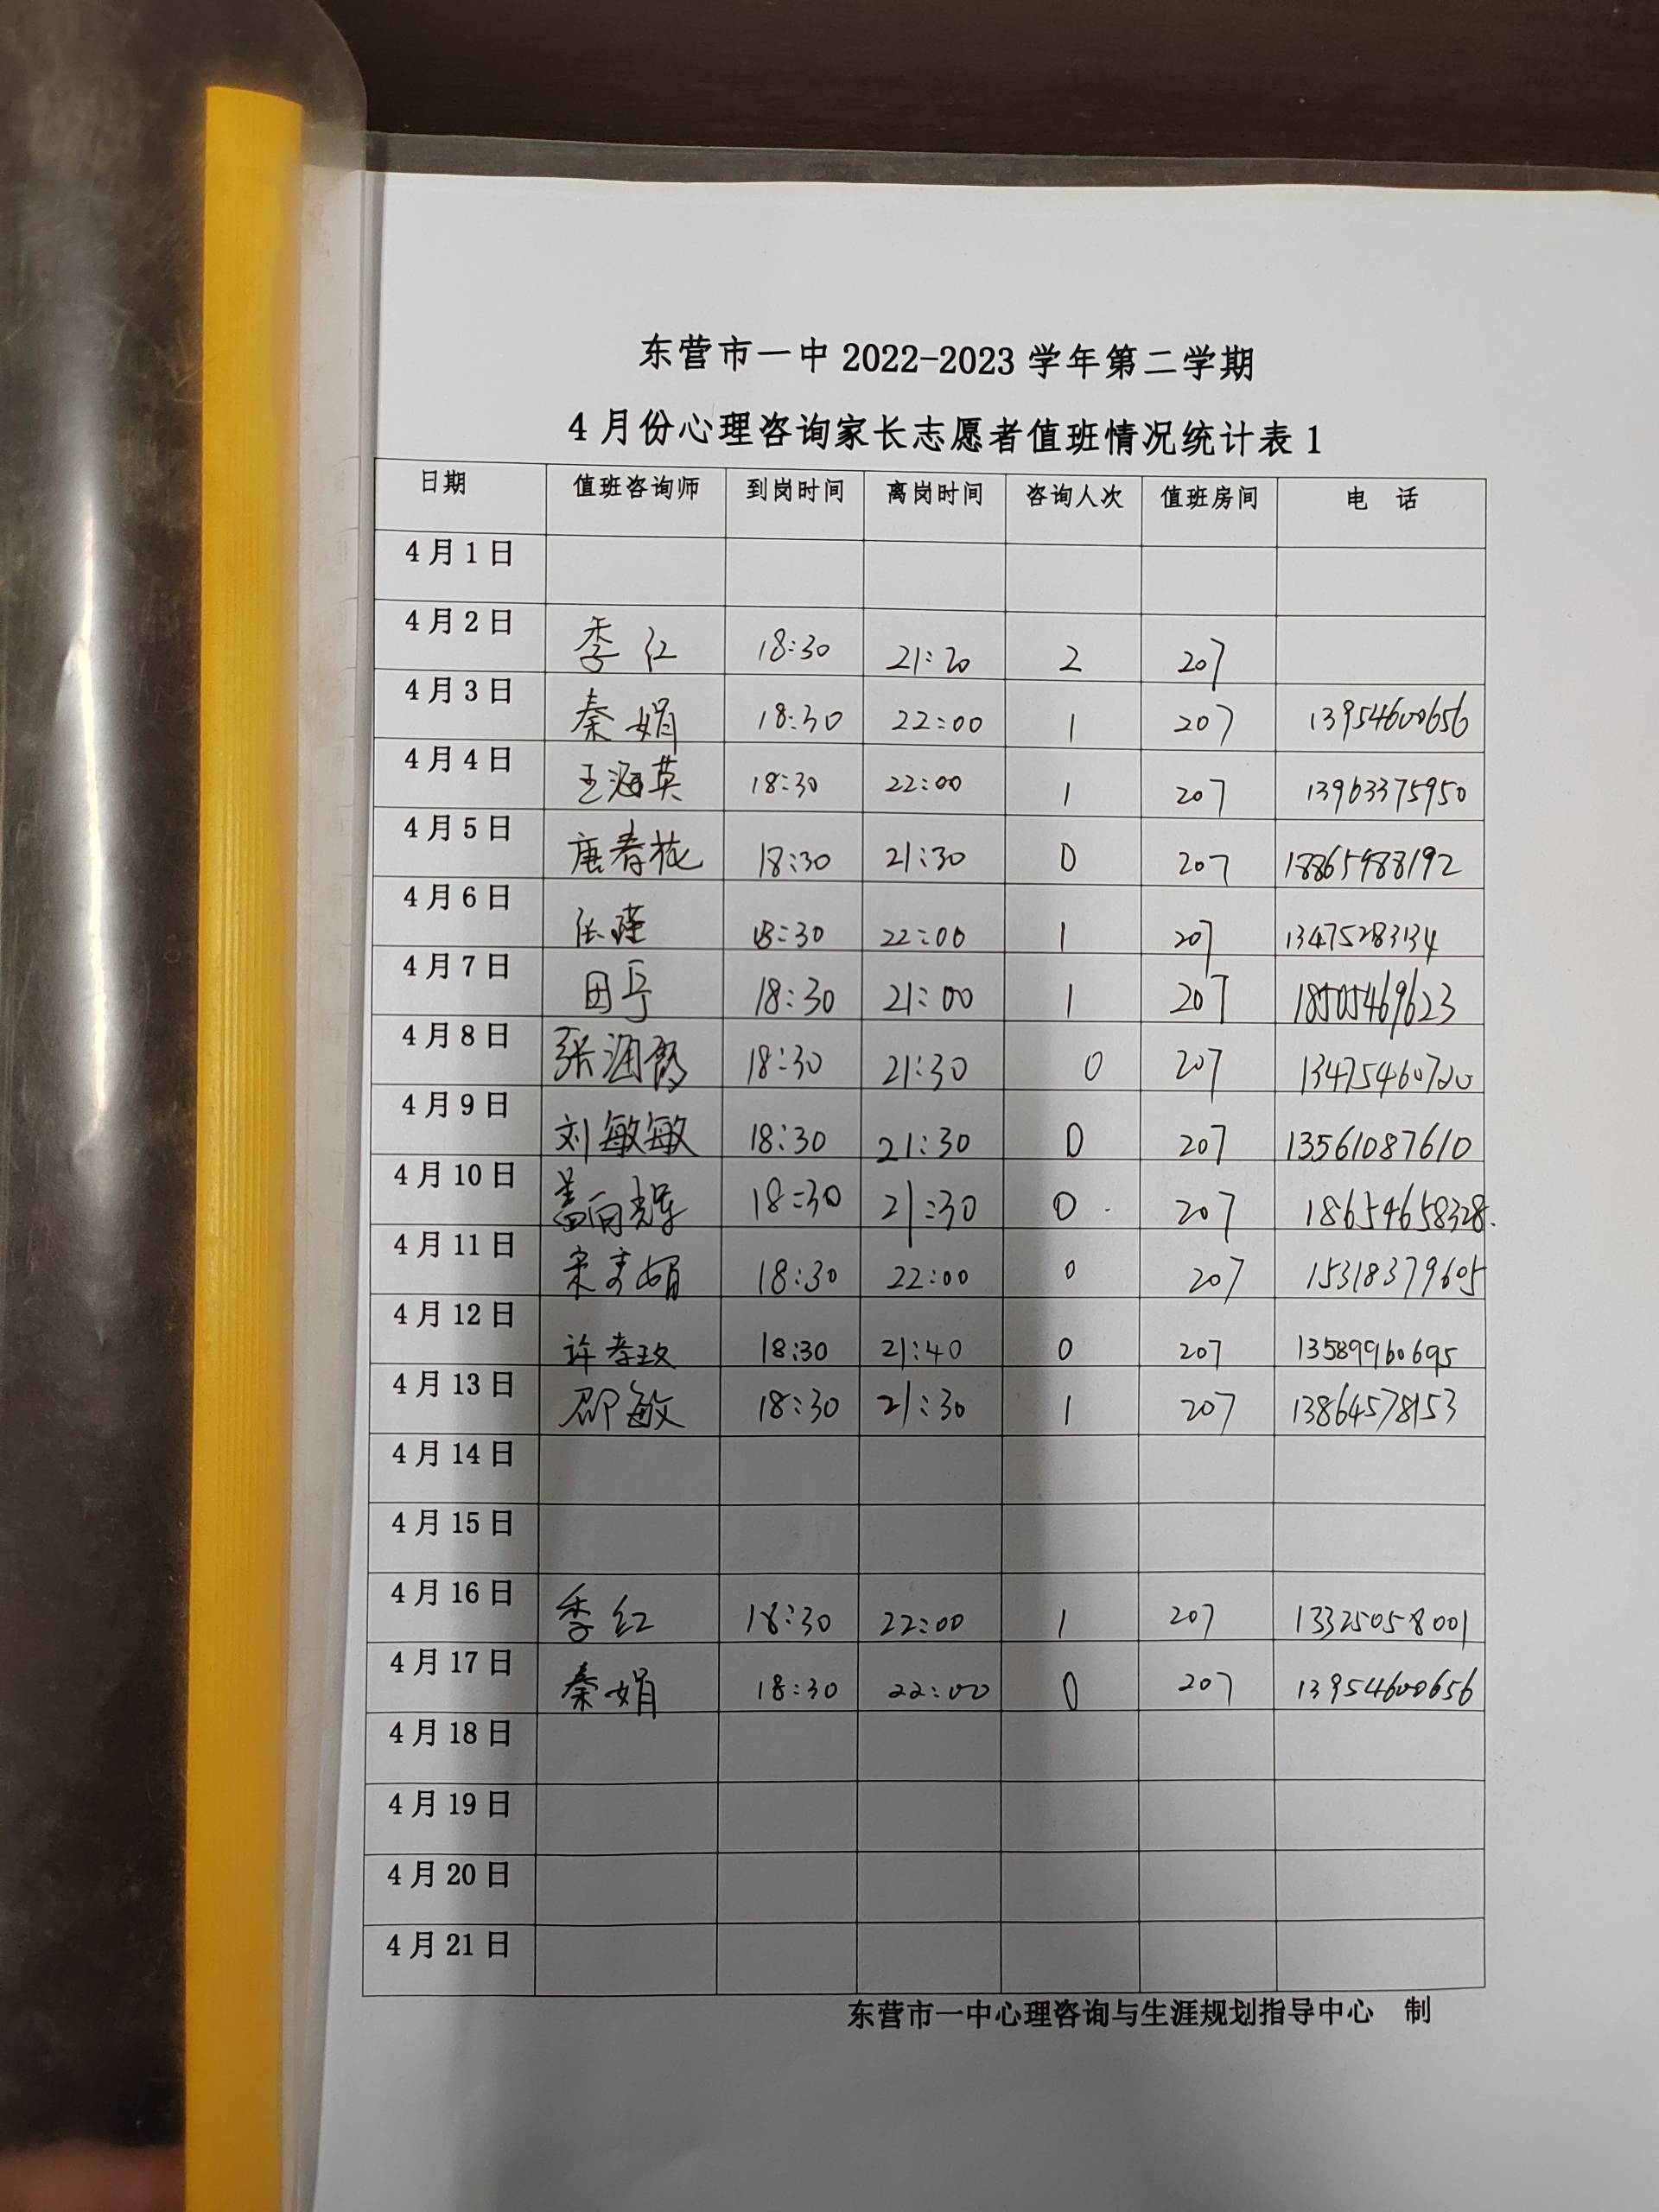 东营市一中 2022-2023 学年第二学期
4 月份心理咨询家长志愿者值班情况统计表 1
日期 值班咨询师 到岗时间 离岗时间 咨询人次 值班房间 电 话
4 月 1 日
4 月 2 日 季红 18:30 21:20 2 207
4 月 3 日 秦娟 18:30 22:00 1 207 13954600656
4 月 4 日 王海英 18:30 22:00 1 207 13963375950
4 月 5 日 唐春花 18:30 21:30 0 207 18865988192
4 月 6 日 18:30 22:00 1 207 13475283134
4 月 7 日 田 18:30 21:00 1 207 18505469623
4 月 8 日 张海 18:30 21:30 0 207 13475460720
4 月 9 日 刘敏敏 18:30 21:30 0 207 13561087610
4 月 10 日 盖向辉 18:30 21:30 0 207 18654658328.
4 月 11 日 宋 娟 18:30 22:00 0 207 15318379605
4 月 12 日 许孝玫 18:30 21:40 0 207 13589960695
4 月 13 日 邵敏 18:30 21:30 1 207 13864578153
4 月 14 日
4 月 15 日
4 月 16 日 季红 18:30 22:00 1 207 13325058001
4 月 17 日 秦娟 18:30 22:00 0 207 13954600656
4 月 18 日
4 月 19 日
4 月 20 日
4 月 21 日
东营市一中心理咨询与生涯规划指导中心 制